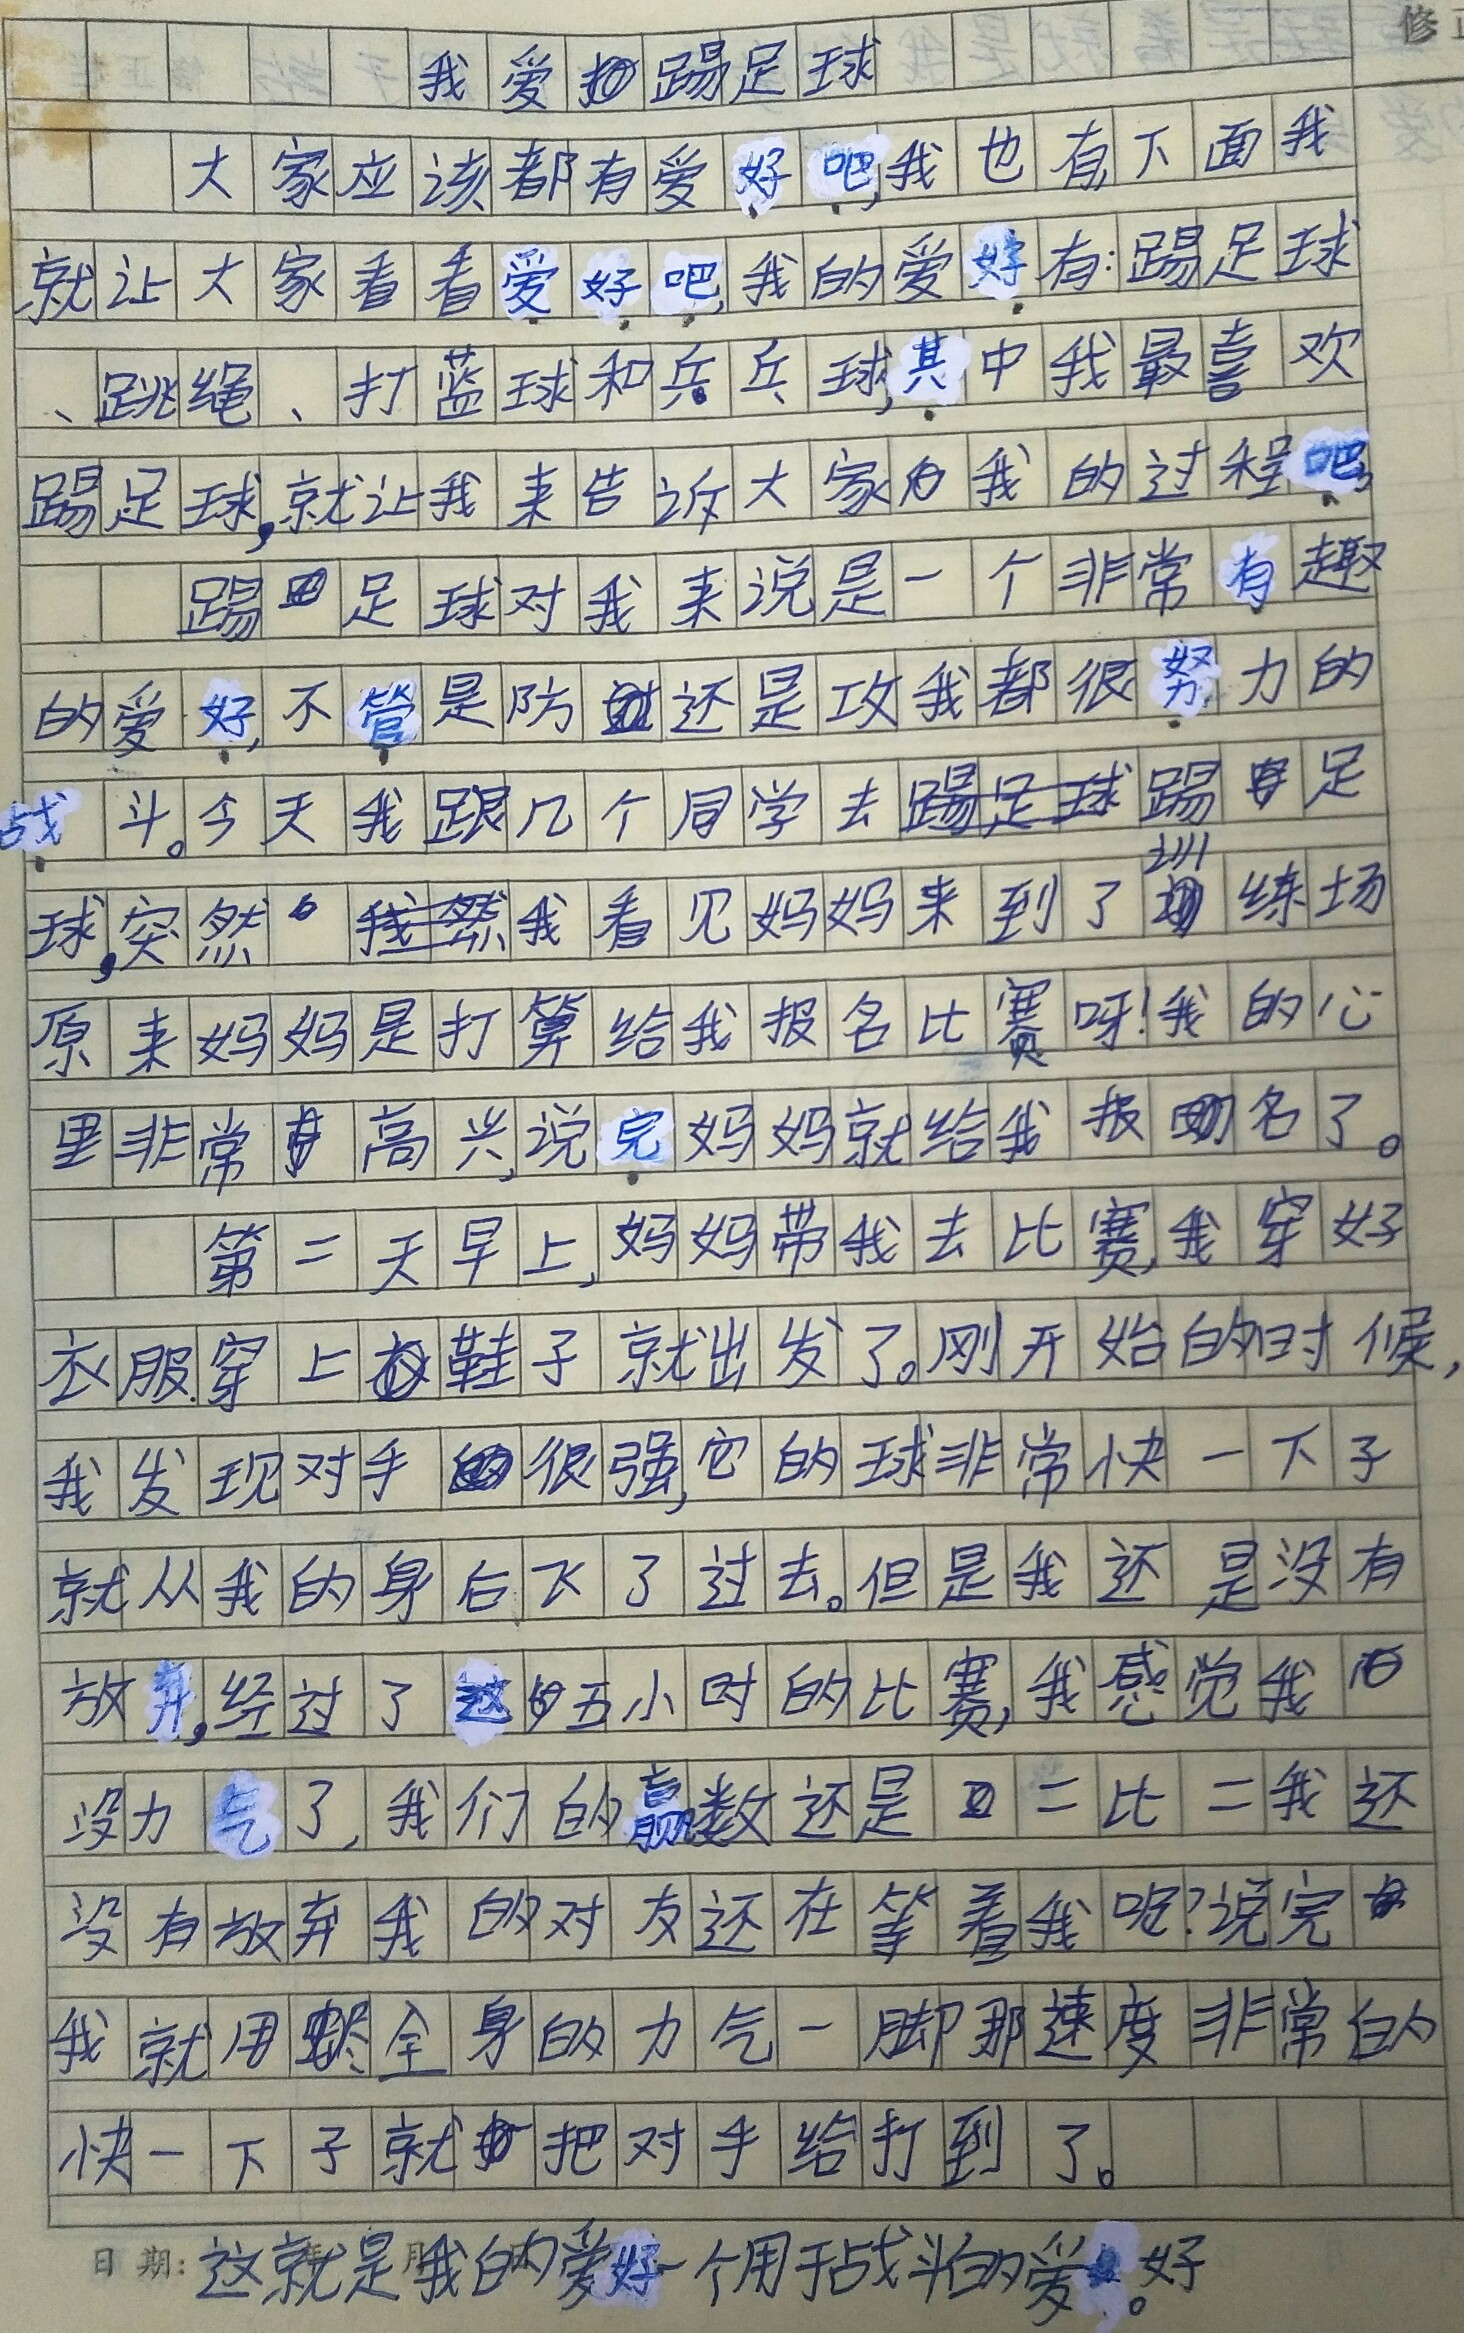 我爱踢足球
大家应该都有爱好吧,我也有,下面我
就让大家看看爱好吧,我的爱好有:踢足球
、跳绳、打蓝球和兵乒球,其中我最喜欢
踢足球,就让我来告诉大家我的过程吧,
踢足球对我来说是一个非常有趣
的爱好,不管是防还是攻我都很努力的
战斗。今天我跟几个同学去踢足
球,突然我看见妈妈来到了训练场
原来妈妈是打算给我报名比赛呀!我的心
里非常高兴,说完妈妈就给我报名了。
第二天早上,妈妈带我去比赛,我穿好
衣服.穿上鞋子就出发了。刚开始的时候,
我发现对手很强,它的球非常快一下子
就从我的身后飞了过去。但是我还是没有
放弃,经过了五小时的比赛,我感觉我
没力气了,我们的赢数还是二比二我还
没有放弃我的对友还在等着我呢?说完
我就用尽全身的力气一脚那速度非常的
快一下子就把对手给打到了。
日期:这就是我的爱好一个用于战斗的爱好。
修正